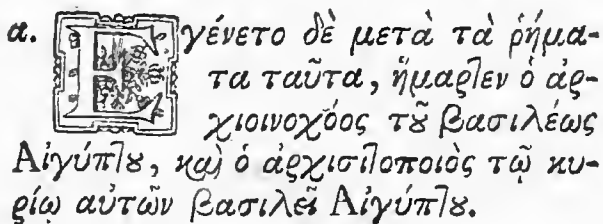 α. Εγένετο δὲ μετὰ τὰ ῥήμα-
τα ταῦτα, ἥμαρτεν ὁ ἀρ-
χιοινοχόος τȣ͂ βασιλέως
Αἰγύπτȣ, καὶ ὁ ἀρχισιτοποιὸς τῷ κυ-
ρίῳ αὐτῶν βασιλεῖ Αἰγύπτȣ.